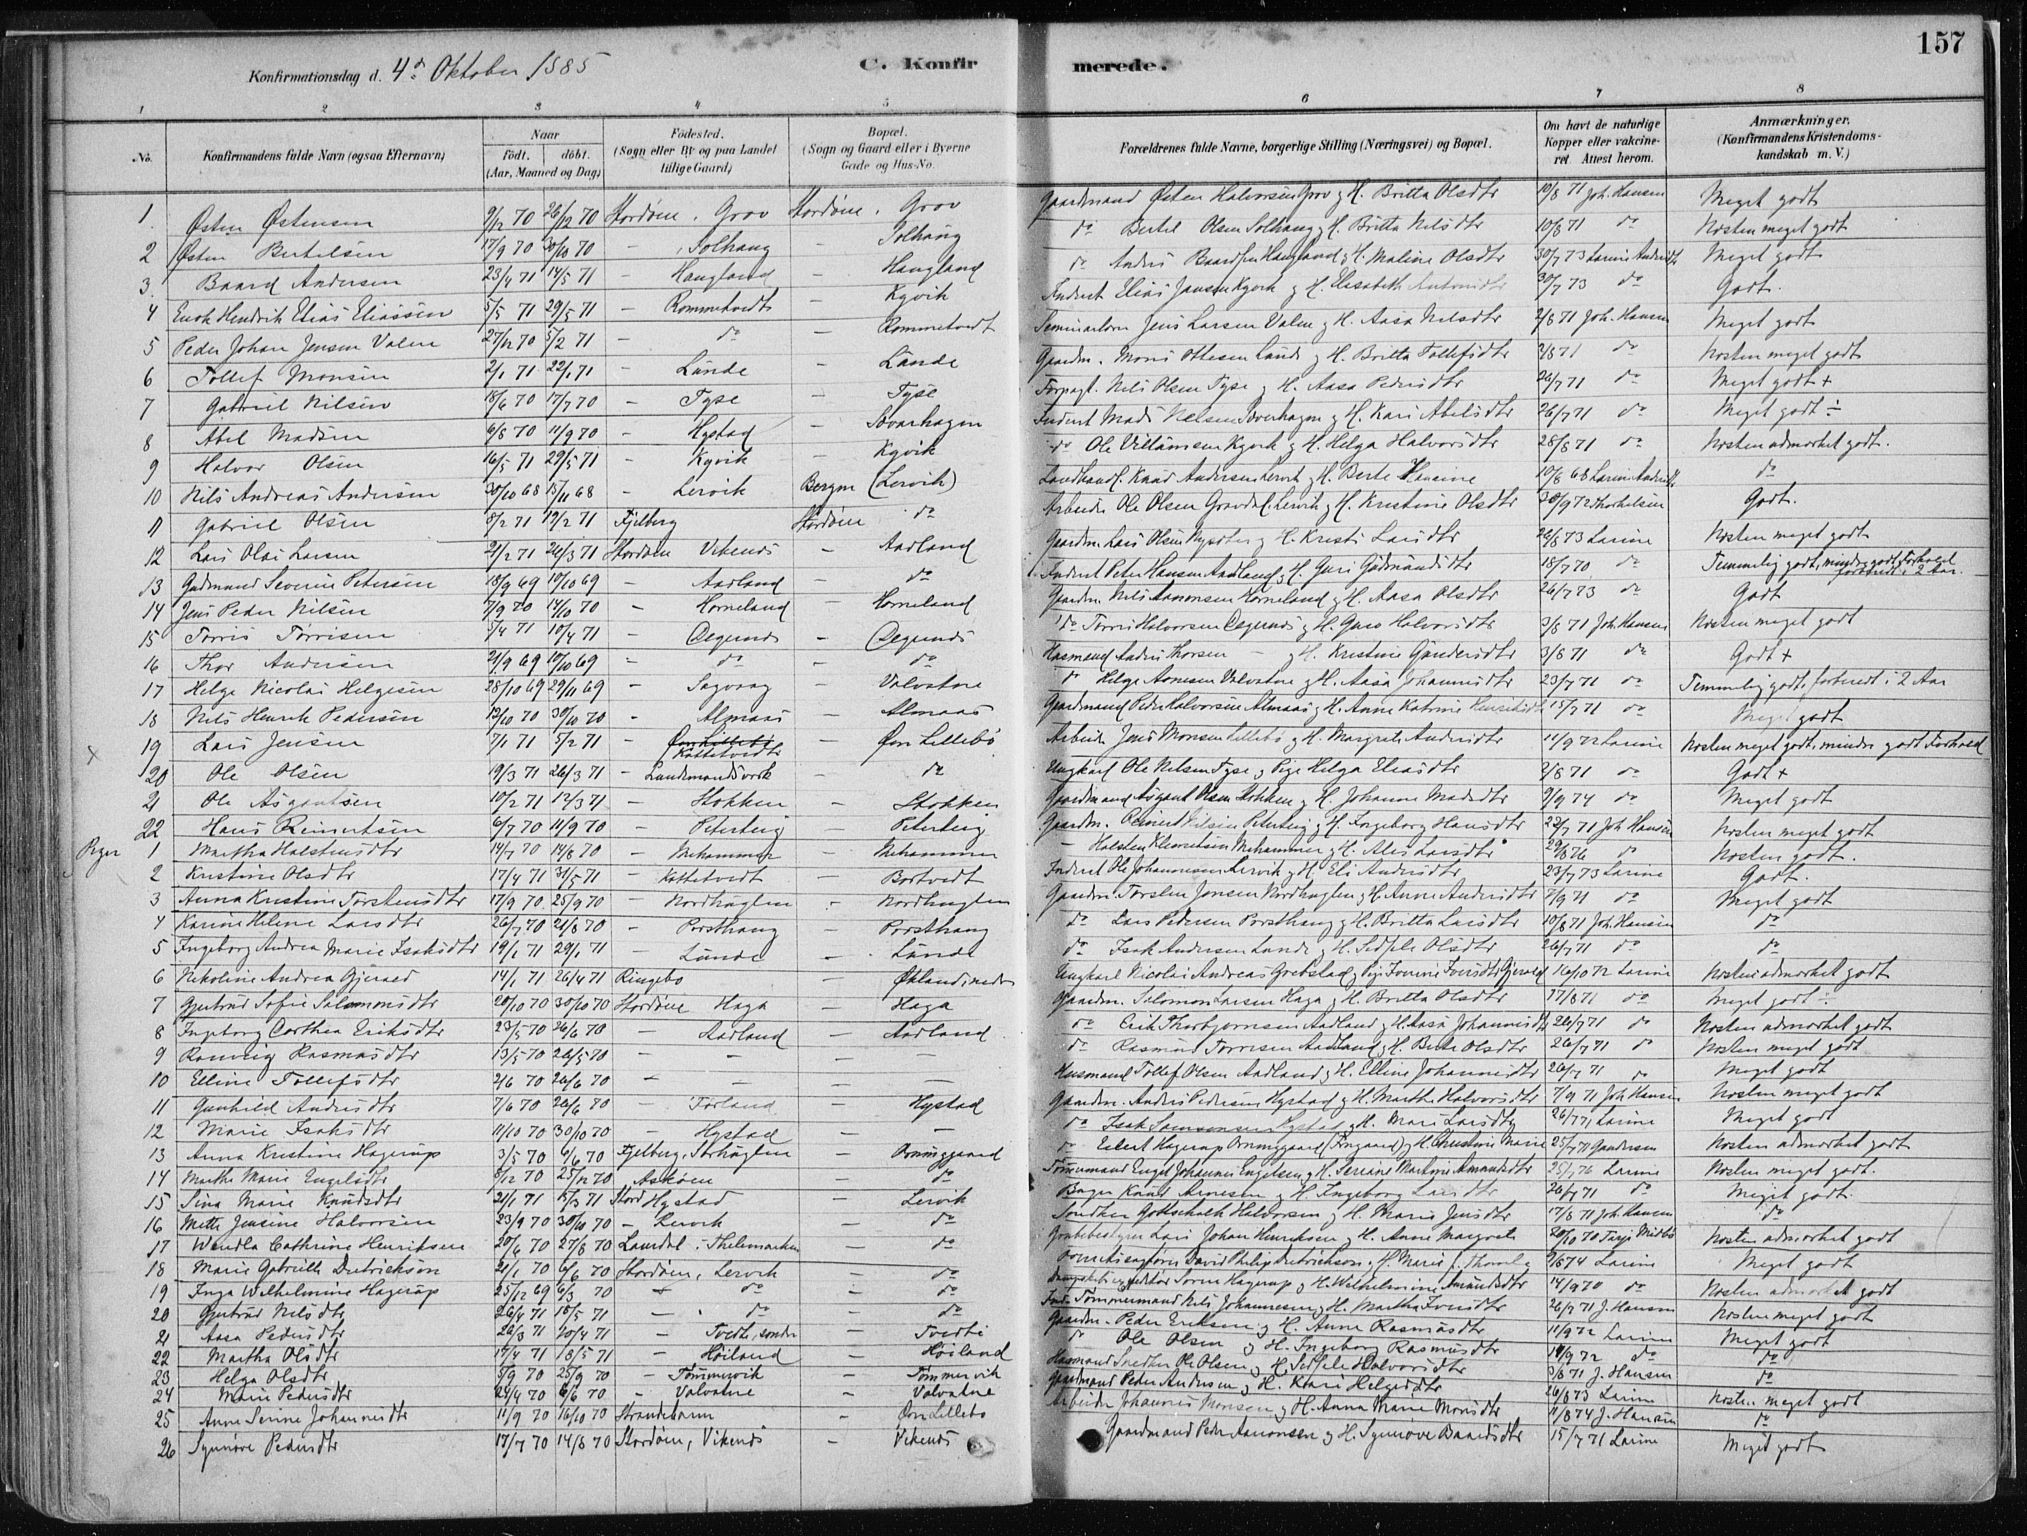 157
Konfirmationsdag d. 4de Oktober 1885 C. Konfir merede.
1 2 3 4 5 6 7 8
No. Konfirmandens fulde Navn (ogsaa Efternavn) Naar Födt. döbt. (Aar, Maaned og Dag) Födested. (Sogn eller By og paa Landet tillige Gaard) Bopæl. (Sogn og Gaard eller i Byerne Gade og Hus-No. Forældrenes fulde Navne, borgerlige Stilling (Næringsvei) og Bopæl. Om havt de naturlige Kopper eller vakcineret Attest herom. Anmærkninger. (Konfirmandens Kristendomskundskab m. V.)
1 Østen Østensen 9/12 70 26/12 70 Stordøen, Grov Stordøen, Grov Gaardmand Østen Halvorsen Grov og H. Britta Olsdtr 10/8 71 Joh. Hansen Meget godt
2 Østen Bertelsen 17/9 70 30/10 70 – Solhaug – Solhaug do Bertel Olsen Solhaug og H. Britta Nilsdtr 10/8 71 Næsten meget godt
3 Baard Andersen 23/4 71 14/5 71 – Haugland – Haugland do Anders Baardsen Haugland og H. Maline Olsdtr 30/7 73 Larine Andersdtr Meget godt
4 Enok Hendrik Elias Eliassen 5/5 71 29/5 71 – Rommetvedt – Kyvik Inderst Elias Jansen Kyvik og H. Elisabeth Antonsdtr 30/7 73 do Godt.
5 Peder Johan Jensen Valen 27/12 70 5/2 71 – do – Rommetvedt Seminarlærer Jens Larsen Valen og H. Aasa Nilsdtr 2/8 71 Joh. Hansen Meget godt
6 Tollef Monsen 2/1 71 22/1 71 – Lunde – Lunde Gaardm. Mons Ottesen Lunde og H. Britta Tollefsdtr 2/8 71 do Næsten meget godt
7 Gabriel Nilsen 18/6 70 17/7 70 – Tyse – Tyse Forpagt. Nils Olsen Tyse og H. Aasa Pedersdtr 26/7 71 do Meget godt +
8 Abel Madsen 6/8 70 11/9 70 – Hystad – Sævarhagen Inderst Mads Nelsen Sævarhagen og H. Kari Abelsdtr 26/7 71 do Meget godt ÷
9 Halvor Olsen 16/5 71 29/5 71 – Kyvik – Kyvik do Ole Villiamsen Kyvik og H. Helga Halvorsdtr 28/8 71 do Næsten udmærket godt.
10 Nils Andreas Andersen 30/10 68 15/11 68 – Lervik Bergen (Lervik) Landhandl. Knud Andersen Lervik og H. Berte Hansine 10/8 68 Larine Andersdtr do
11 Gabriel Olsen 8/2 71 19/2 71 Fjelberg Stordøen do Arbeider Ole Olsen Gravdal, Lervik og H. Kristine Olsdtr 30/9 72 Thorkilsen Godt.
12 Lars Olai Larsen 21/2 71 26/3 71 Stordøen Vikenes – Aadland Gaardm. Lars Olsen og H. Kristi Larsdtr 26/8 73 Larine Næsten meget godt
13 Gudmund Severin Petersen 18/9 69 10/10 69 – Aadland – do Inderst Peter Hansen Aadland og H. Guri Gudmundsdtr 18/7 70 do Temmelig godt, mindre godt Forhold forbered. i 2 Aar.
14 Jens Peder Nilsen 7/9 70 14/10 70 – Horneland – Horneland Gaardm. Nils Aanonsen Horneland og H. Aasa Olsdtr 26/7 73 do Godt
15 Torris Torrisen 5/4 71 10/4 71 – Digernes – Digernes do Torris Halvorsen Digernes og H. Guro Halvorsdtr 3/8 71 Joh. Hansen Næsten meget godt
16 Thor Andersen 21/9 69 10/10 69 – do – do Husmand Anders Thorsen – og H. Kristine Gundersdtr 3/8 71 do Godt +
17 Helge Nicolai Helgesen 28/10 69 29/11 69 – Sagvaag – Valvatne do Helge Valvatne og H. Aasa Johannesdtr 23/7 71 do Temmelig godt, forbered. i 2 Aar
18 Nils Henrik Pedersen 12/10 70 30/10 70 – Almaas – Almaas Gaardmand Peder Halvorsen Almaas og H. Anne Katrine Henriksdtr 15/7 71 do Meget godt
19 Lars Jensen 7/1 71 5/2 71 – Øvre Lillebø Kattetvedt – Øvre Lillebø Arbeider Jens Monsen Lillebø og H. Margrete Andersdtr 11/9 72 Larine Næsten meget godt, mindre godt Forhold
x 20 Ole Olsen 19/3 71 26/3 71 – Landmandsverk – do Ungkarl Ole Nilsen Tyse og Pige Helga Eliasdtr 2/8 71 do Godt +
21 Ole Asgautsen 10/2 71 12/3 71 – Stokken – Stokken Gaardmand Asgaut Olsen Stokken og H. Johanne Madsdtr 9/9 74 do Meget godt
22 Hans Reinertsen 6/7 70 11/9 70 – Petarteig – Petarteig Gaardm. Reinert Nilsen Petarteig og H. Ingeborg Hansdtr 22/7 71 Joh. Hansen Næsten meget godt
Piger 1 Martha Halstensdtr 14/7 70 14/8 70 – Mehammer – Mehammer – Halsten Mehammer og H. Larsdtr 29/8 76 do Næsten godt.
2 Kristine Olsdtr 17/4 71 31/5 71 – Kattetvedt – Bortvedt Inderst Ole Johannessen Lervik og H. Eli Andersdtr 23/7 73 Larine Godt.
3 Anna Kristine Torstensdtr 17/9 70 25/9 70 – Nordhuglen – Nordhuglen Gaardm. Torsten Jonsen Nordhuglen og H. Anne Andersdtr 7/9 71 do Meget godt
4 Karine Helene Larsdtr 26/7 70 21/8 70 – Porsthaug – Porsthaug do Lars Pedersen Porsthaug og H. Britta Larsdtr 10/8 71 Joh. Hansen do
5 Ingeborg Andrea Marie Isaksdtr 19/1 71 29/1 71 – Lunde – Lunde do Isak Andersen Lunde og H. Sissele Olsdtr 26/7 71 do do
6 Nikoline Andrea Gjeraed 14/1 71 26/4 71 Ringebo Økland, nedre Ungkarl Nicolai Andreas Grebstad og Pige Iversdtr Gjeraed 16/10 72 Larine Næsten udmærket godt
7 Gjertrud Sofie Salomonsdtr 20/10 70 30/10 70 Stordøen Haga – Haga Gaardm. Salomon Larsen Haga og H. Britta Olsdtr 17/8 71 do Meget godt ÷
8 Ingeborg Dorthea Eriksdtr 23/5 70 26/6 70 – Aadland – Aadland do Erik Thorbjørnsen Aadland og H. Aasa Johannesdtr 26/7 71 do Næsten udmærket godt
9 Ranveig Rasmusdtr 13/5 70 26/5 70 – – – – do Rasmus Torrisen Aadland og H. Berte Olsdtr 26/7 71 do Næsten meget godt
10 Elline Tollefsdtr 2/6 70 26/6 70 – – – – Husmand Tollef Olsen Aadland og H. Elline Johannesdtr 26/7 71 do Meget godt
11 Gunhild Andersdtr 7/6 70 26/6 70 – Førland Hystad Gaardm. Anders Pedersen Hystad og H. Marthe Halvorsdtr 7/9 71 Joh. Hansen Næsten meget godt
12 Marie Isaksdtr 11/10 70 30/10 70 – Hystad – do Isak Samsonsen Hystad og H. Mari Larsdtr 26/7 71 Larine Meget godt
13 Anna Kristine Hagerup 3/5 70 6/6 70 Fjelberg, Storhuglen Ornunggaard do Edvard Hagerup Ornunggaard og H. Christine Marie 25/7 71 Gundersen Næsten udmærket godt
14 Marthe Marie Engelsdtr 5/12 70 25/12 70 Askøen – do Tømmermand Engel Johannes Engelsen og H. Seriane Martine Amundsdtr 25/7 76 Larine Næsten meget godt.
15 Sina Marie Knudsdtr 21/1 71 5/3 71 Stord Hystad – Lervik Bager Knud Arnesen og H. Ingeborg Larsdtr 26/7 71 do Meget godt
16 Mette Jensine Halvorsen 23/9 70 30/10 70 – Lervik – do Snedker Gottschalk Halvorsen og H. Marie Jensdtr 17/8 71 Joh. Hansen do
17 Wendla Cathrine Henriksen 20/6 70 27/8 70 Laurdal i Thelemarken – do Grubebestyrer Lars Johan Henriksen og H. Anne Margrete 20/10 70 Terje Midbø Næsten udmærket godt
18 Marie Gabrielle Dietrichson 21/1 70 6/6 70 Stordøen, Lervik – do David Philip Dietrichson og H. Marie 9/6 74 Larine Meget godt
19 Inga Wilhelmine Hagerup 25/12 69 6/3 70 – do – do Søren Hagerup og H. Wilhelmine Amundsdtr 14/9 70 do Næsten udmærket godt
20 Gjertrud Nilsdtr 26/4 71 18/5 71 – do – do Inds. Tømmermand Nils Johannesen og H. Martha Iversdtr 26/7 71 J. Hansen Næsten meget godt
21 Aasa Pedersdtr 26/3 71 10/4 71 – Tvedte, søndre – Tvedte Gaardm. Peder Eriksen og H. Anne Rasmusdtr 11/9 72 Larine Meget godt
22 Martha Olsdtr 17/4 71 18/5 71 – Høiland – Høiland do Ole Olsen og H. Ingeborg Rasmusdtr 14/9 72 do do
23 Helga Olsdtr 5/9 70 25/9 70 – Tømmervik – Tømmervik Husmand Snedker Ole Olsen og H. Sissele Halvorsdtr 3/8 71 J. Hansen do
24 Marie Pedersdtr 24/4 70 6/6 70 – Valvatne – Valvatne Gaardmand Peder Andersen og H. Kari Helgesdtr 26/8 73 Larine Næsten meget godt
25 Anne Serine Johannesdtr 11/9 70 16/10 70 Strandebarm – Øvre Lillebø Arbeider Johannes Monsen og H. Anna Marie Monsdtr 11/8 74 J. Hansen do
26 Synnøve Pedersdtr 17/7 70 14/8 70 Stordøen, Vikenes – Vikenes Gaardmand Peder Aanonsen og H. Synnøve Baardsdtr 15/7 71 Larine Meget godt